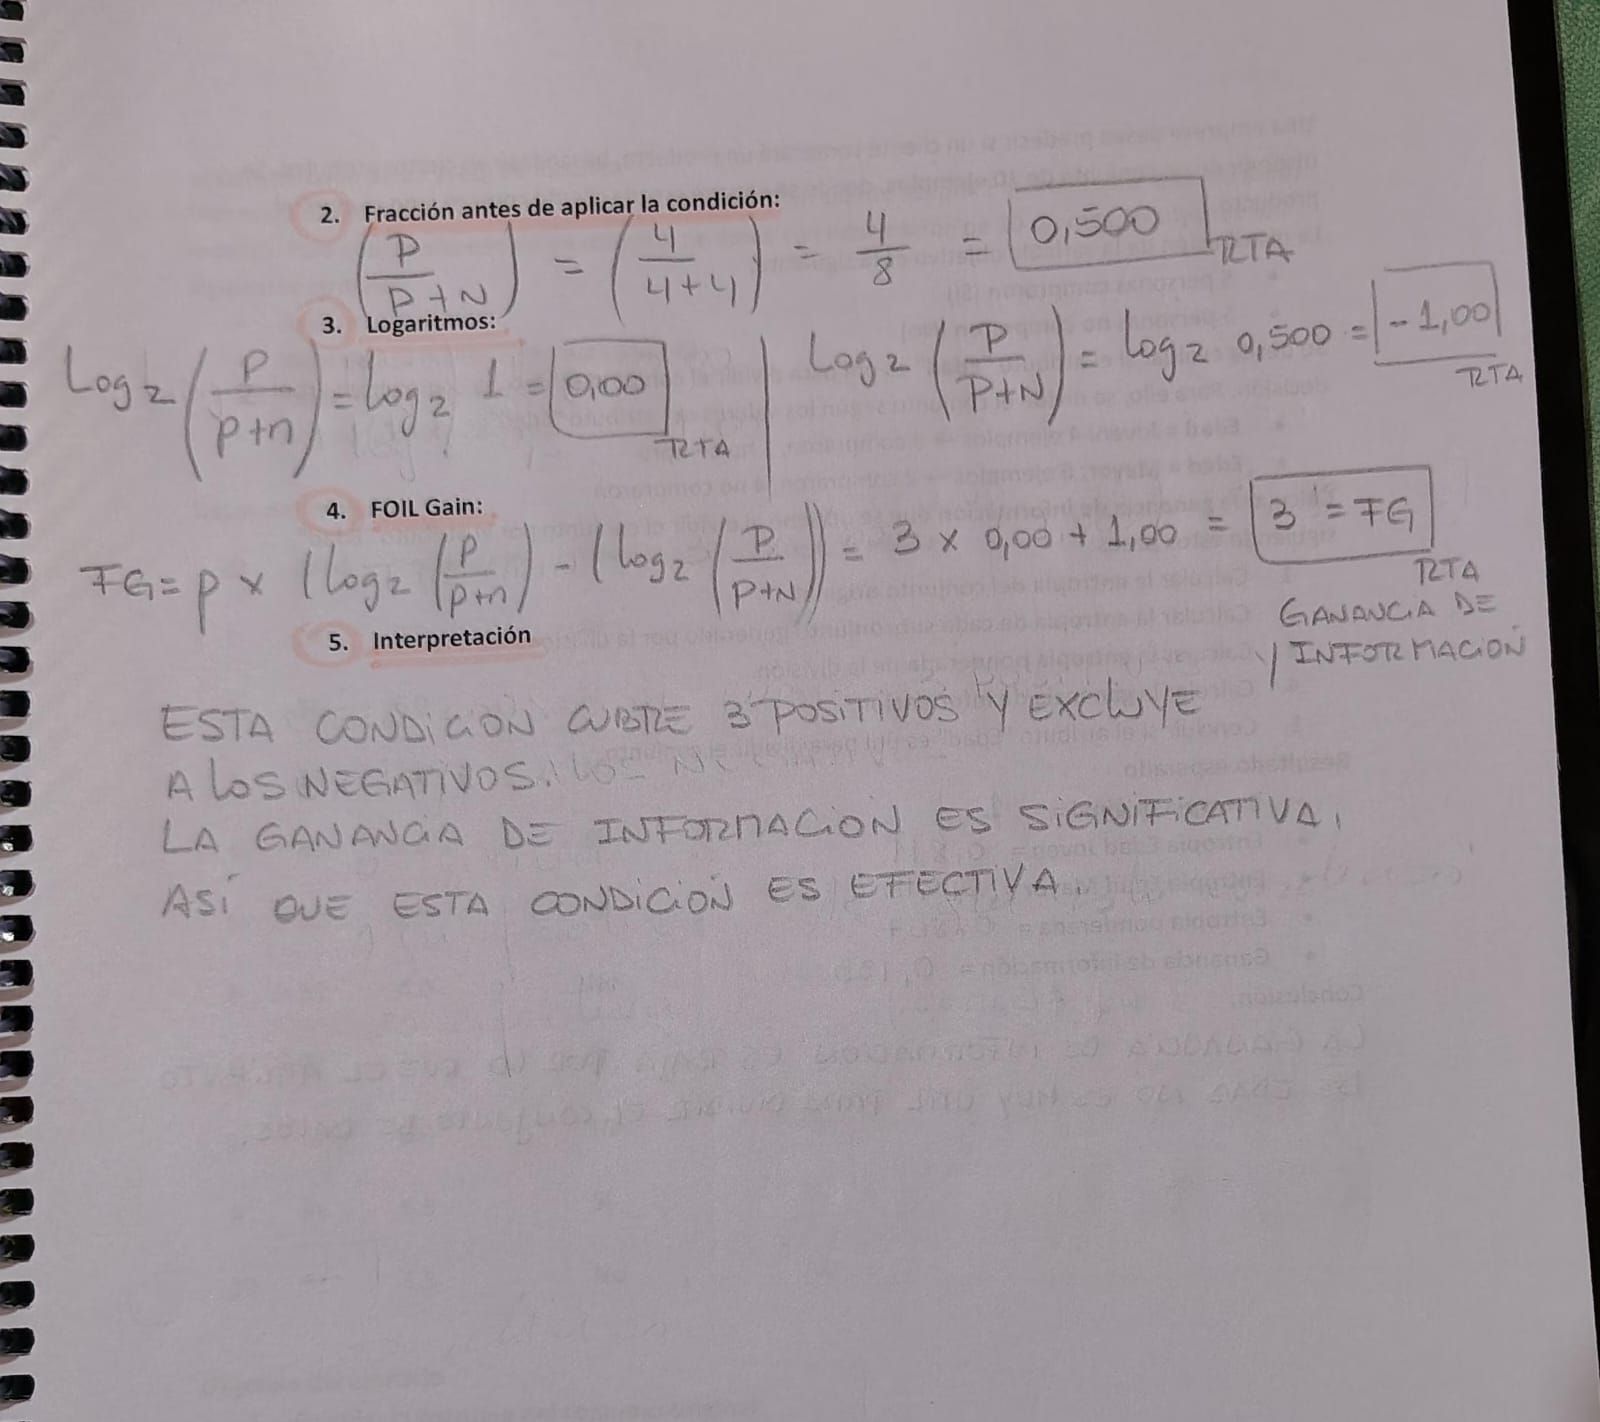 2. Fracción antes de aplicar la condición:
(P / P+N) = (4 / 4+4) = 4/8 = 0,500 RTA
3. Logaritmos:
Log2 (p / p+n) = log2 1 = 0,00 RTA | Log2 (P / P+N) = log2 0,500 = -1,00 RTA
4. FOIL Gain:
FG = p x (log2 (p / p+n) - (log2 (P / P+N)) = 3 x 0,00 + 1,00 = 3 = FG RTA
GANANCIA DE
INFORMACION
5. Interpretación
ESTA CONDICION CUBRE 3 POSITIVOS Y EXCLUYE
A LOS NEGATIVOS.
LA GANANCIA DE INFORMACION ES SIGNIFICATIVA,
ASÍ QUE ESTA CONDICIÓN ES EFECTIVA.